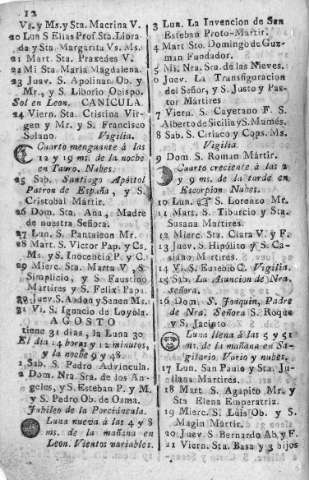 12
Vs. y Ms. y Sta. Macrina V.
20 Lun S Elias Prof Sta. Libra-
da y Sta Margarita Vs. Ms.
21 Mart. Sta. Praxedes V.
22 Mi Sta Maria Magdalena.
23 Juev. S. Apolinar Ob. y
Mr., y S. Liborio Obispo.
Sol en Leon. CANICULA.
24 Viern. Sta. Cristina Vir-
gen y Mr. y S. Francisco
Solano. Vigilia.
Cuarto menguante á las
12 y 19 ms. de la noche
en Tauro. Nubes.
25 Sab. Santiago Apóstol
Patron de España, y S.
Cristobal Mártir.
26 Dom. Sta. Ana, Madre
de nuestra Señora.
27 Lun. S. Pantaleon Mr.
28 Mart. S. Victor Pap. y Cs.
Ms. y S. Inocencia P. y C.
29 Mierc. Sta. Marta V., S
Simplicio, y S. Faustino
Martires y S. Felix Papa.
30 Juev. S. Abdon y Senen Ms.
31 Vi. S. Ignacio de Loyola.
AGOSTO
tiene 31 dias, la Luna 30.
El dia 14 horas y 12 minutos,
y la noche 9 y 48.
1 Sab. S. Pedro Advincula.
2 Dom. Nra. Sra. de los An-
geles, y S. Esteban P. y M.
y S. Pedro Ob. de Osma.
Jubileo de la Porciúncula.
Luna nueva á las 4 y 8
ms. de la mañana en
Leon. Vientos variables.
3 Lun. La Invencion de San
Esteban Proto-Martir.
4 Mart Sto. Domingo de Guz-
man Fundador.
5 Mi. Nra. Sra. de las Nieves.
6 Juev. La Transfiguracion
del Señor, y S. Justo y Pas-
tor Mártires
7 Viern. S. Cayetano F. S.
Alberto de Sicilia y S. Mumés.
8 Sab. S. Ciriaco y Cops. Ms.
Vigilia.
9 Dom. S. Roman Mártir.
Cuarto creciente á las 2
y 9 ms. de la tarde en
Escorpion Nubes.
10 Lun. S. Lorenzo Mr.
11 Mart. S. Tiburcio y Sta.
Susana Martires.
12 Mierc. Sta. Clara V. y F.
13 Juev. S. Hipólito y S. Ca-
siano Martires.
14 Vi. S. Eusebio C. Vigilia.
15 Sab. La Asuncion de Nra.
Señora.
16 Dom. S. Joaquin, Padre
de Nra. Señora S. Roque
y S. Jacinto.
Luna llena á las 5 y 51
ms. de la mañana en Sa-
gitario. Vario y nubes.
17 Lun. San Paulo y Sta. Ju-
liana Martires.
18 Mart. S. Agapito Mr. y
Sta Elena Emperatriz.
19 Mierc. S. Luis Ob. y S.
Magin Mártir.
20 Juev. S Bernardo Ab. y F.
21 Viern. Sta. Basa y 3 hijos